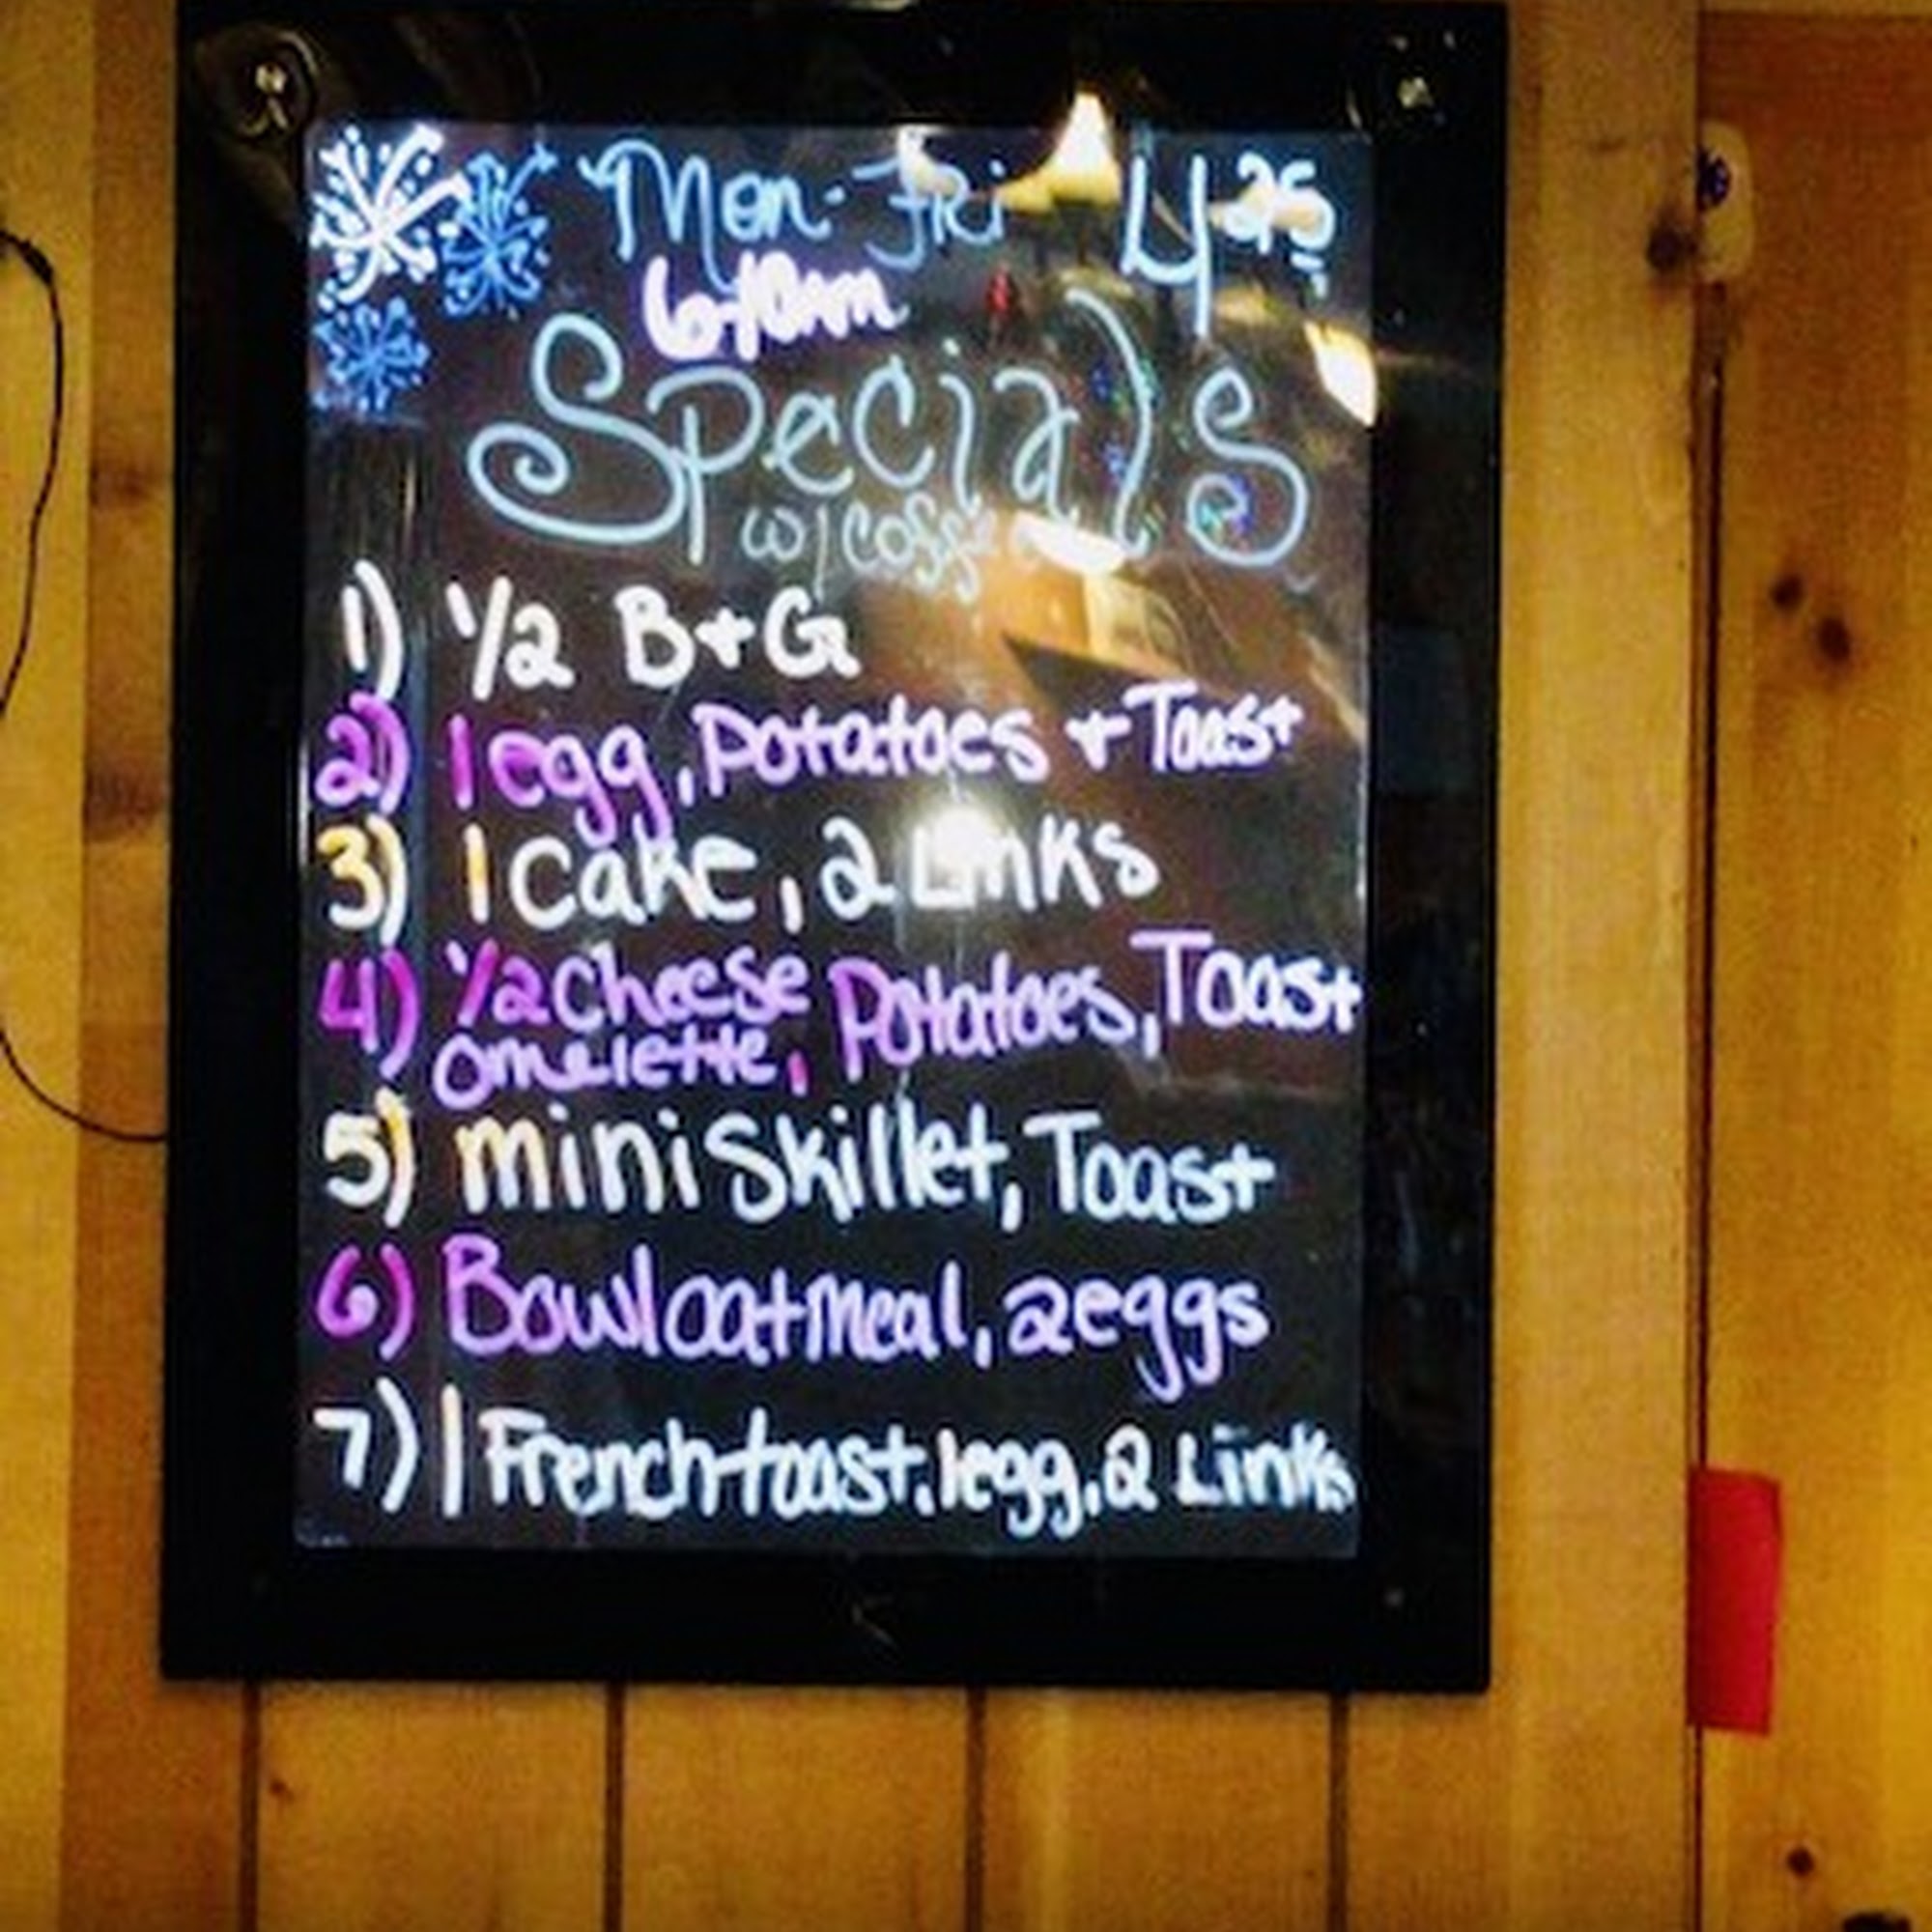 Mon-Fri 4 25
6-10am
Specials
w/coffee
1) 1/2 B+G
2) 1 egg, Potatoes + Toast
3) 1 Cake, 2 Links
4) 1/2 Cheese Potatoes, Toast
omelette,
5) mini Skillet, Toast
6) Bowl oatmeal, 2 eggs
7) 1 French toast, 1 egg, 2 Links